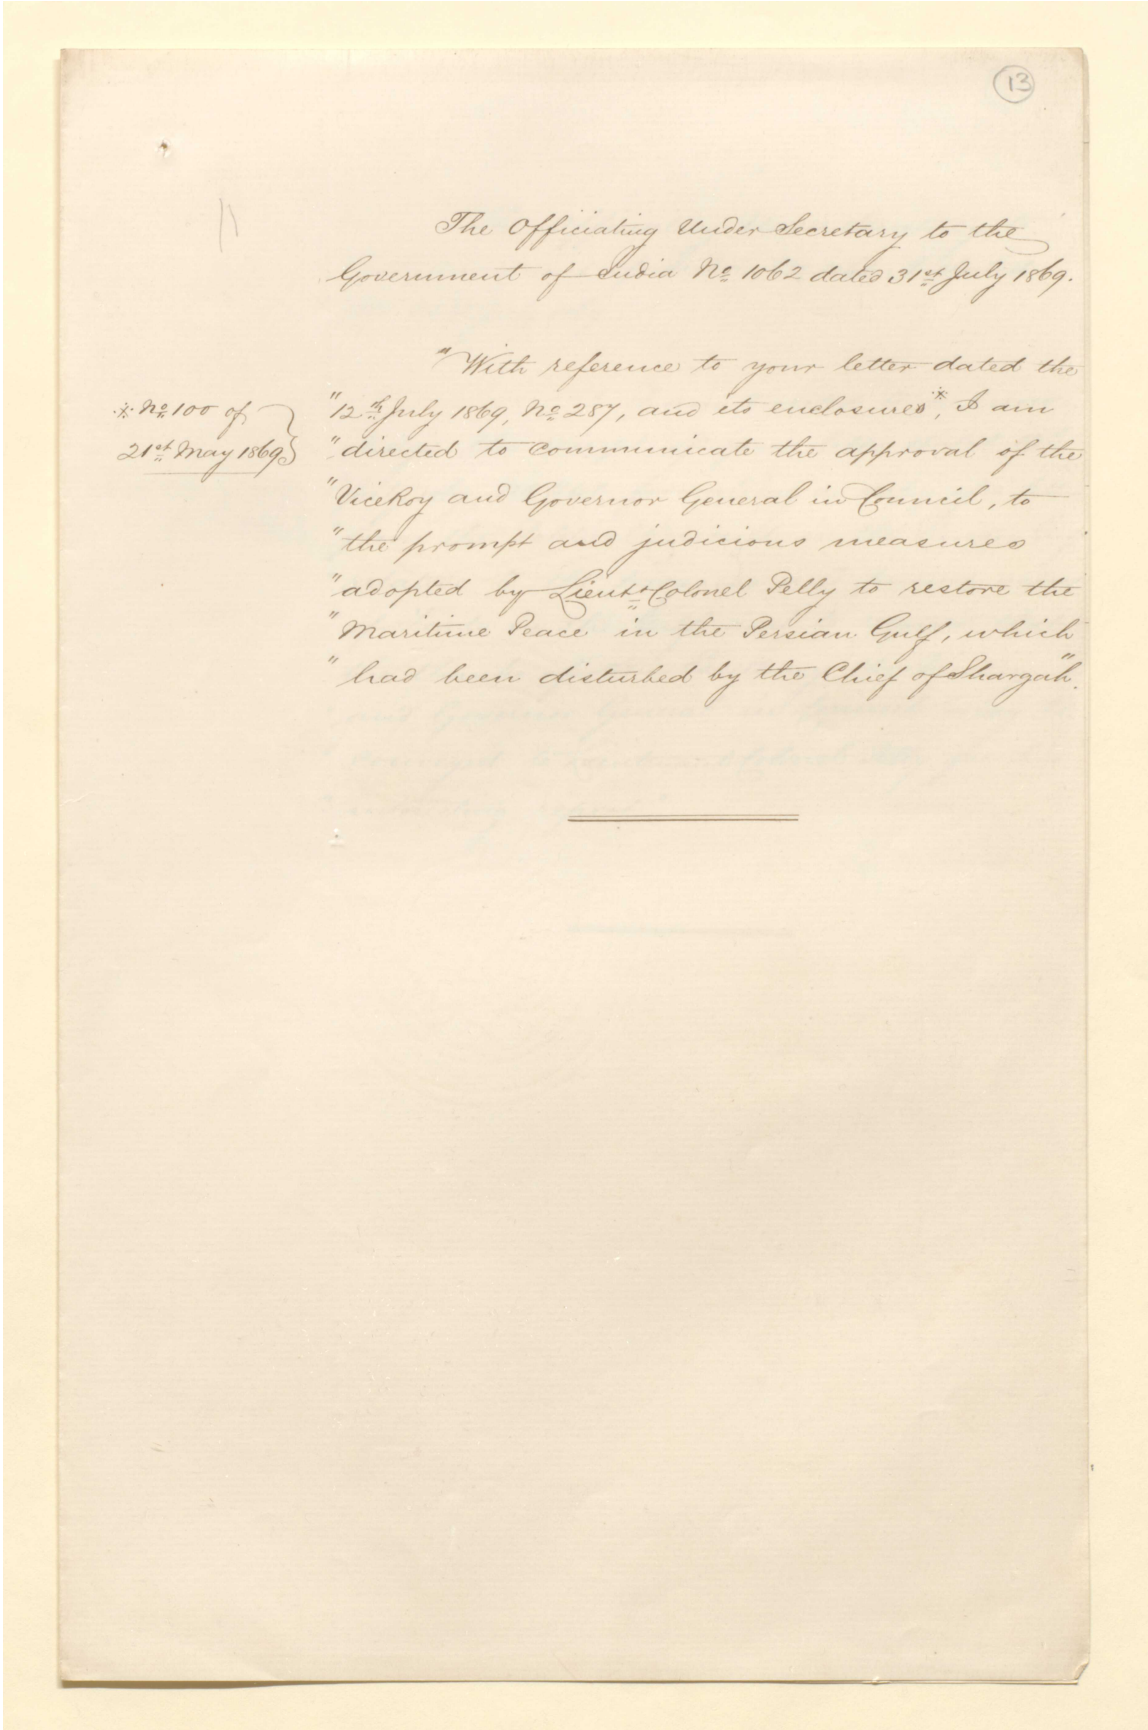 13
11
The Officiating Under Secretary to the
Government of India No 1062 dated 31st July 1869.
"With reference to your letter dated the
※ No 100 of
21st May 1869
"12th July 1869, No 287, and its enclosures※, I am
"directed to communicate the approval of the
"ViceRoy and Governor General in Council, to
"the prompt and judicious measures
"adopted by Lieut. Colonel Pelly to restore the
"Maritime Peace in the Persian Gulf, which
"had been disturbed by the Chief of Shargah".